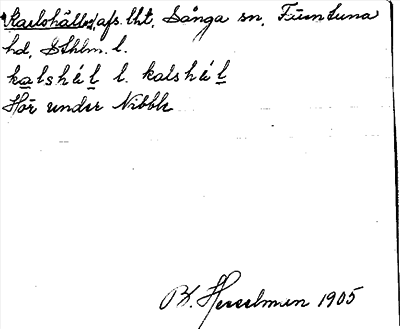 Karlshäll, afs. lht, Sånga sn, Färentuna
hd, Sthlm. l.
kalshäl l. kalshäl
Hör under Nibble
Hesselman 1905